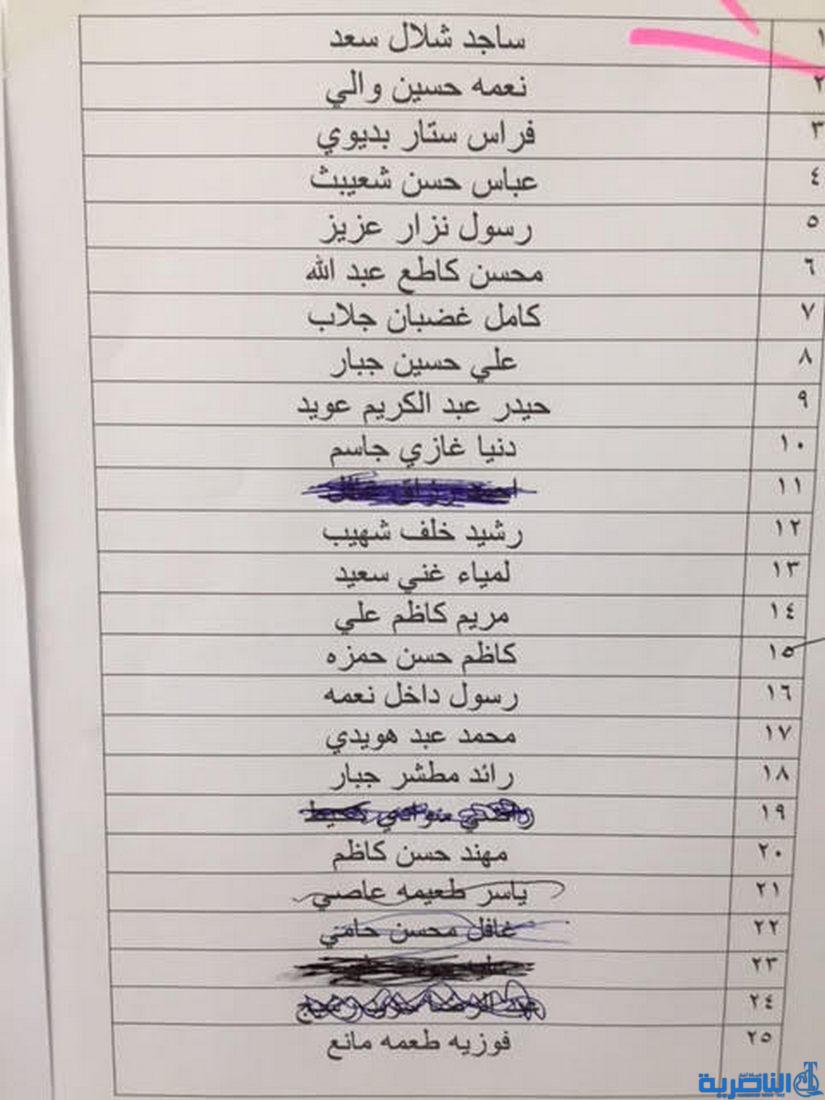 ١ ساجد شلال سعد
٢ نعمه حسين والي
٣ فراس ستار بديوي
٤ عباس حسن شعيبث
٥ رسول نزار عزيز
٦ محسن كاطع عبد الله
٧ كامل غضبان جلاب
٨ علي حسين جبار
٩ حيدر عبد الكريم عويد
١٠ دنيا غازي جاسم
١١
١٢ رشيد خلف شهيب
١٣ لمياء غني سعيد
١٤ مريم كاظم علي
١٥ كاظم حسن حمزه
١٦ رسول داخل نعمه
١٧ محمد عبد هويدي
١٨ رائد مطشر جبار
١٩
٢٠ مهند حسن كاظم
٢١ ياسر طعيمه عاصي
٢٢ غافل محسن حامي
٢٣
٢٤
٢٥ فوزيه طعمه مانع
الناصرية